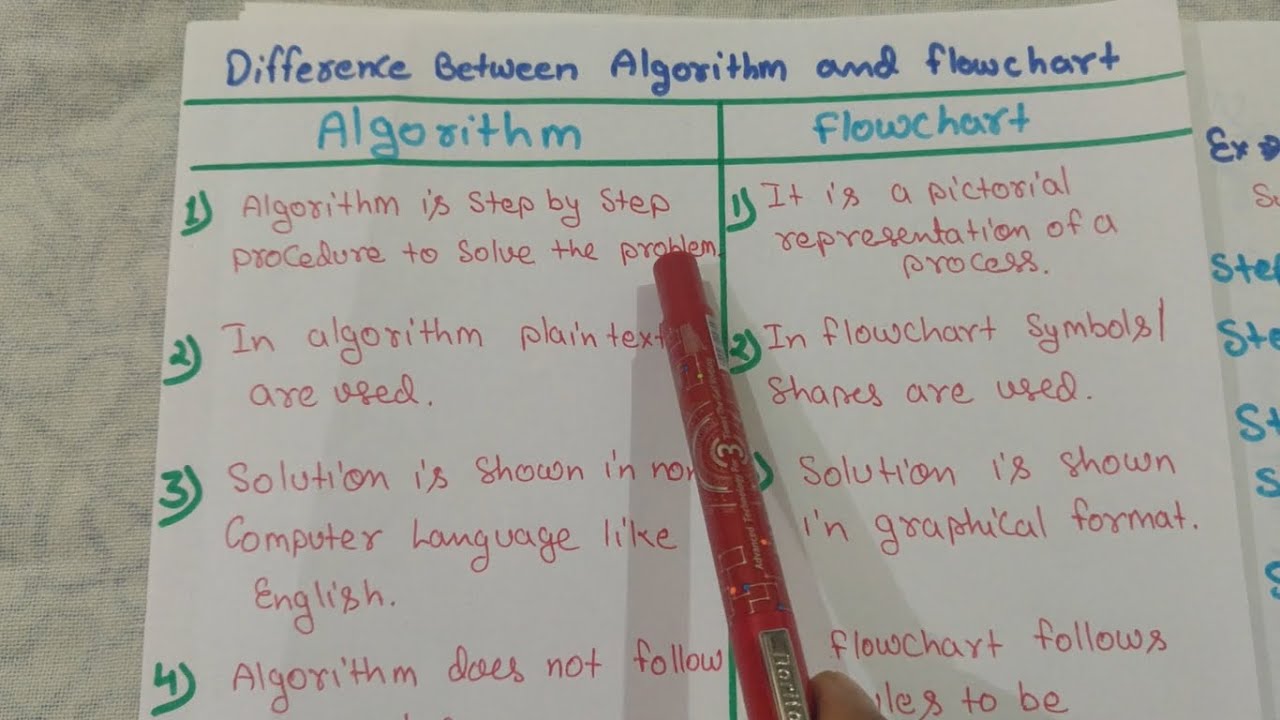 Difference Between Algorithm and flowchart
Algorithm
flowchart
1) Algorithm is Step by Step
procedure to Solve the problem.
1) It is a pictorial
representation of a
process.
2) In algorithm plain text
are used.
2) In flowchart Symbols/
Shapes are used.
3) Solution is Shown in non
Computer Language like
English.
) Solution is shown
in graphical format.
4) Algorithm does not follow
flowchart follows
to be
Ex
Step
Ste
St
S
S
3
Advanced Technology